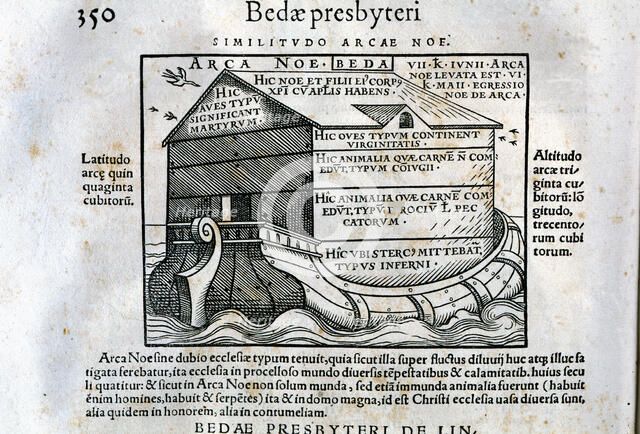 350
Bedæ presbyteri
SIMILITVDO ARCAE NOE.
ARCA NOE. BEDA
VII · K̄ · IVNII · ARCA
NOE LEVATA EST · VI
K · MAII · EGRESSIO
NOE DE ARCA ·
HIC NOE ET FILII EI9 CORP9
XPI CV APLIS HABENS ·
HIC
AVES TYPV
SIGNIFICANT
MARTYRVM ·
HIC OVES TYPVM CONTINENT
VIRGINITATIS ·
HIC ANIMALIA QVÆ CARNE N̄ COM
EDV̄T, TYPVM COIVGII ·
HĪC ANIMALIA QVÆ CARNE̅ COM
EDV̄T, PEC
CATORVM ·
HI̅C VBI STERC9 MITTEBAT̅,
TYPVS INFERNI ·
Latitudo
arcę quin
quaginta
cubitorū.
Altitudo
arcæ tri-
ginta cu-
bitorū: lō
gitudo,
trecento-
rum cubi
torum.
Arca Noe sine dubio ecclesiæ typum tenuit, quia sicut illa super fluctus diluuij huc atq; illuc fa
tigata ferebatur, ita ecclesia in procelloso mundo diuersis tēpestatibus & calamitatib. huius secu
li quatitur: & sicut in Arca Noe non solum munda, sed etiā immunda animalia fuerunt (habuit
énim homines, habuit & serpētes) ita & in domo magna, id est Christi ecclesia uasa diuersa sunt,
alia quidem in honorem, alia in contumeliam.
BEDAE PRESBYTERI DE LIN-